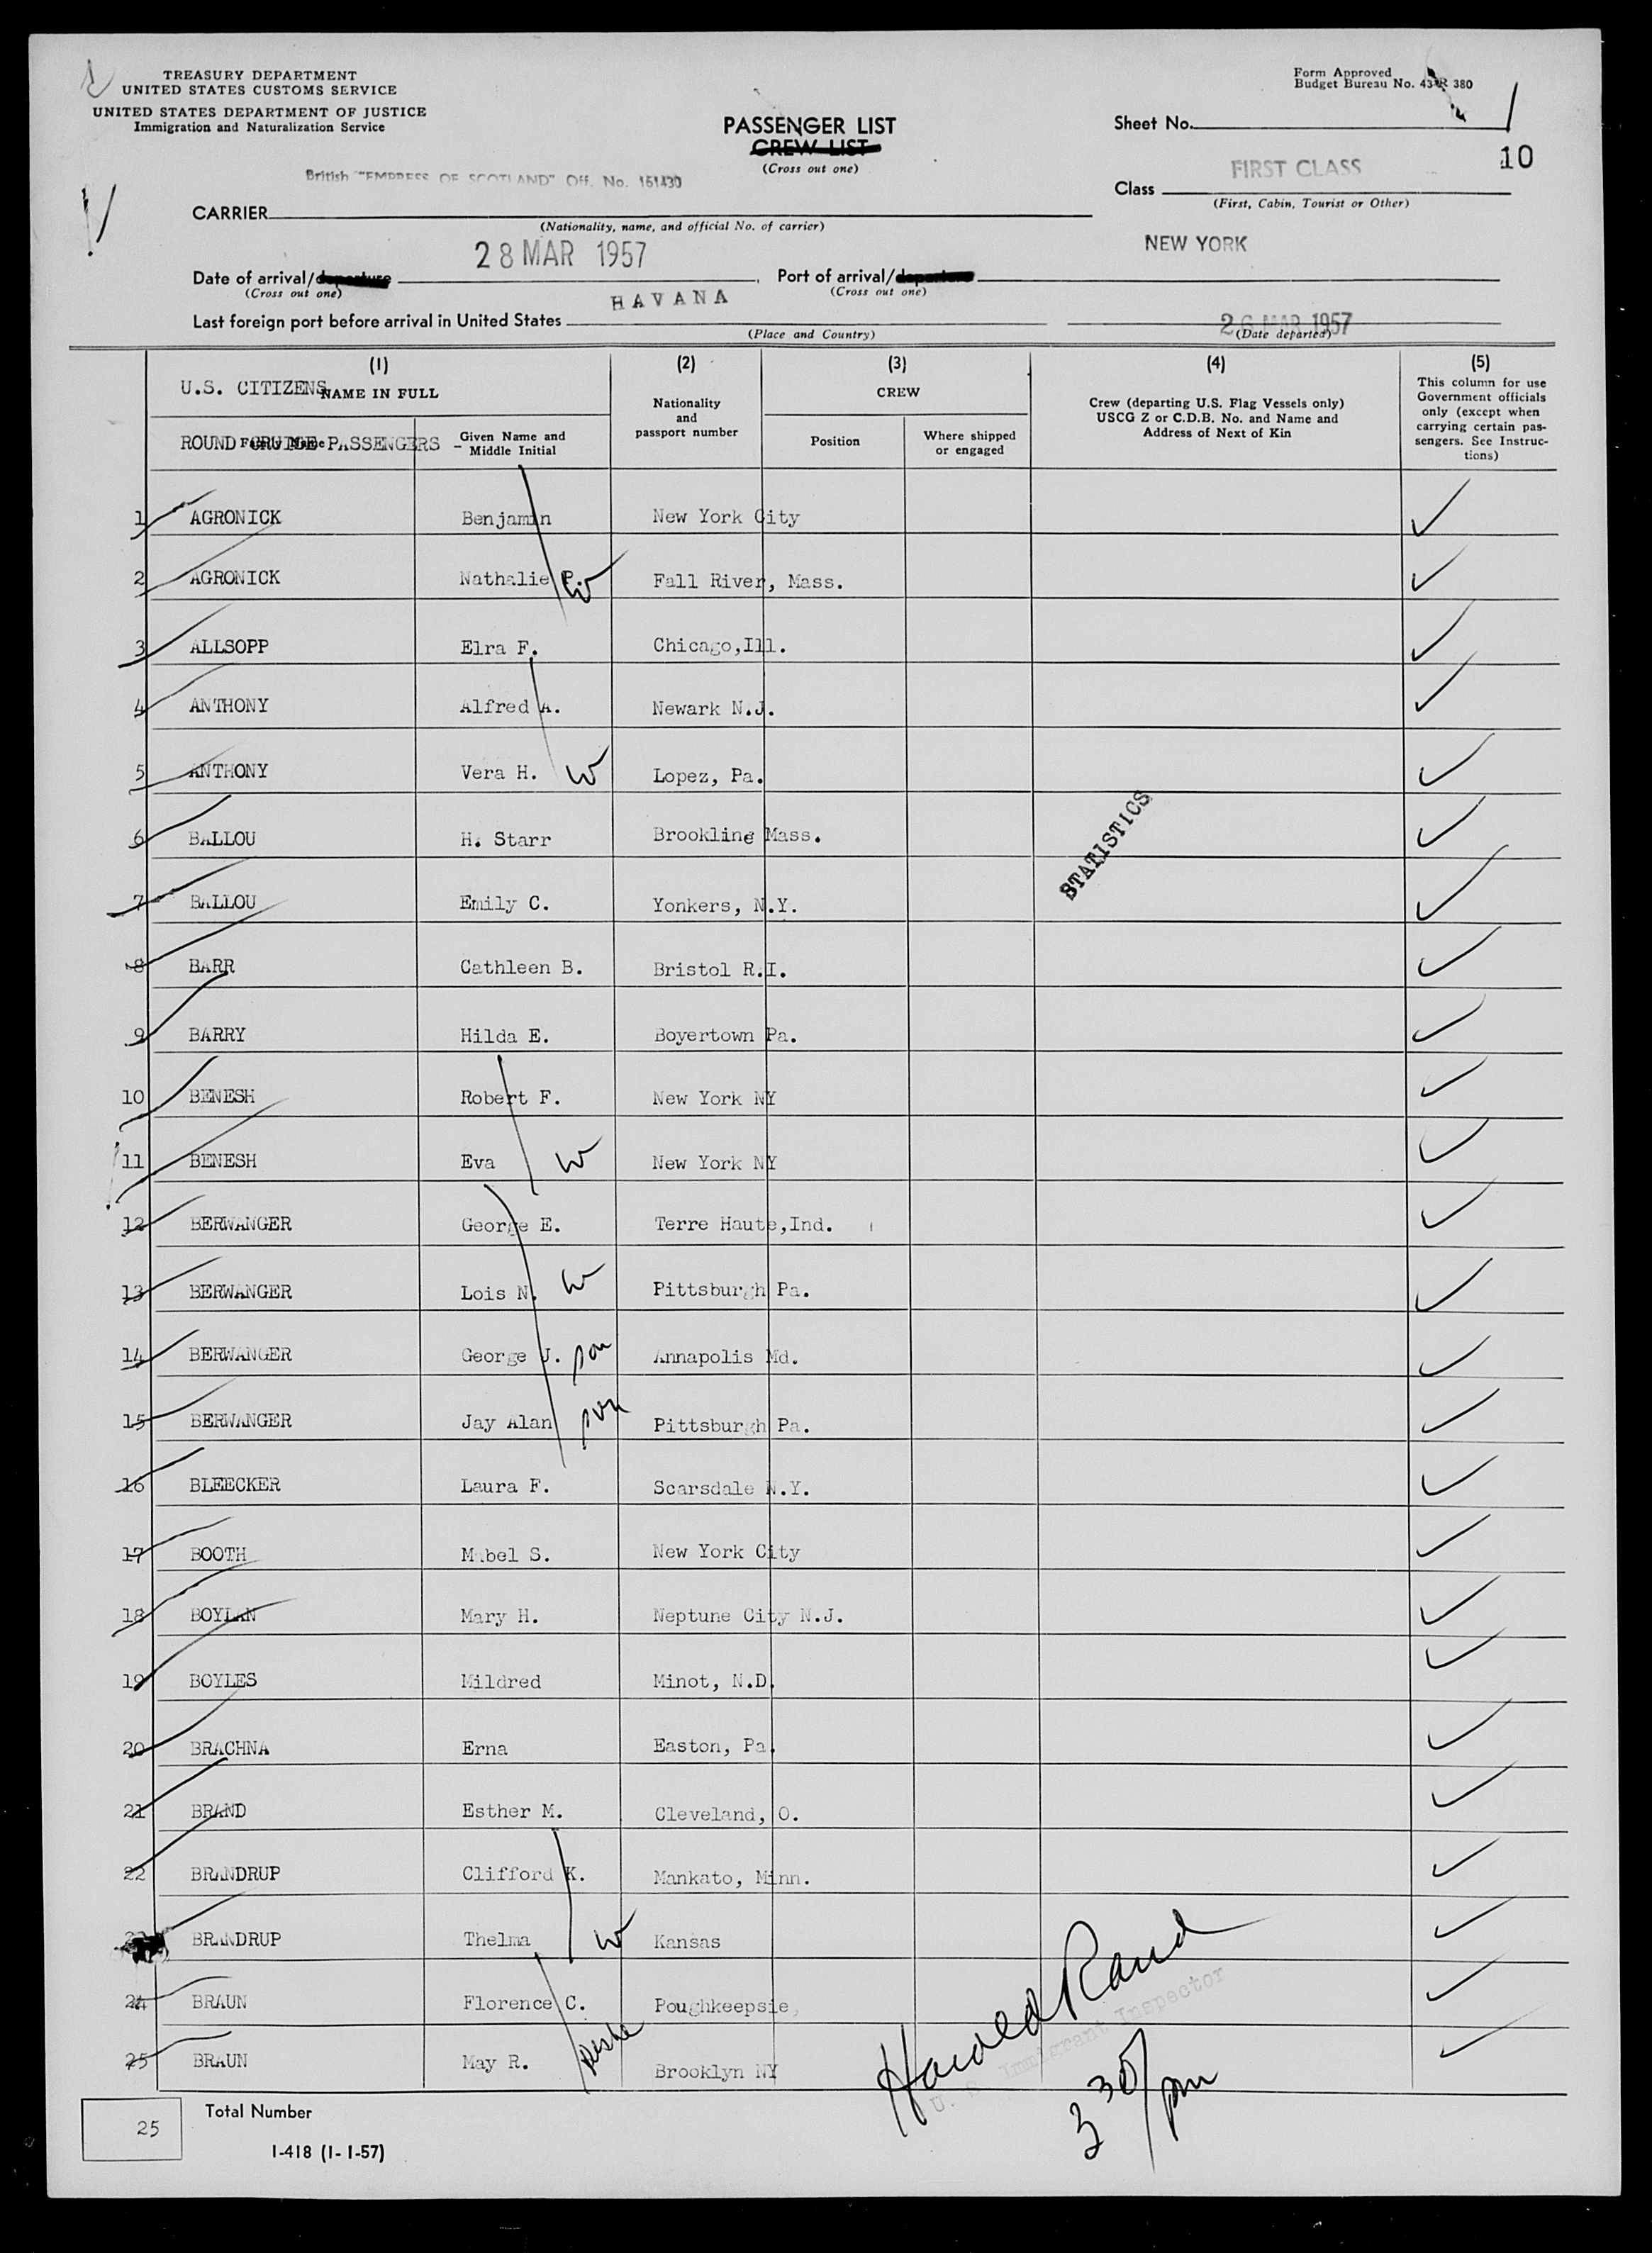 TREASURY DEPARTMENT
UNITED STATES CUSTOMS SERVICE
UNITED STATES DEPARTMENT OF JUSTICE
Immigration and Naturalization Service
Form Approved
Budget Bureau No. 43-R 380
PASSENGER LIST
CREW LIST
(Cross out one)
Sheet No. 1
10
British "EMPRESS OF SCOTLAND" Off. No. 161430
CARRIER
(Nationality, name, and official No. of carrier)
Class FIRST CLASS
(First, Cabin, Tourist or Other)
Date of arrival/departure 28 MAR 1957
(Cross out one)
Port of arrival/departure NEW YORK
(Cross out one)
Last foreign port before arrival in United States HAVANA
(Place and Country)
26 MAR 1957
(Date departed)
(1) (2) (3) (4) (5)
U.S. CITIZENS
NAME IN FULL
ROUND CRUISE PASSENGERS -
Family Name
Given Name and Middle Initial
Nationality and passport number
CREW
Position
Where shipped or engaged
Crew (departing U.S. Flag Vessels only)
USCG Z or C.D.B. No. and Name and
Address of Next of Kin
This column for use
Government officials
only (except when
carrying certain pas-
sengers. See Instruc-
tions)
1 AGRONICK Benjamin New York City
2 AGRONICK Nathalie P. W Fall River, Mass.
3 ALLSOPP Elra F. Chicago,Ill.
4 ANTHONY Alfred A. Newark N.J.
5 ANTHONY Vera H. W Lopez, Pa.
6 BALLOU H. Starr Brookline Mass.
7 BALLOU Emily C. Yonkers, N.Y.
STATISTICS
8 BARR Cathleen B. Bristol R.I.
9 BARRY Hilda E. Boyertown Pa.
10 BENESH Robert F. New York NY
11 BENESH Eva W New York NY
12 BERWANGER George E. Terre Haute,Ind.
13 BERWANGER Lois N. W Pittsburgh Pa.
14 BERWANGER George J. son Annapolis Md.
15 BERWANGER Jay Alan son Pittsburgh Pa.
16 BLEECKER Laura F. Scarsdale N.Y.
17 BOOTH Mabel S. New York City
18 BOYLAN Mary H. Neptune City N.J.
19 BOYLES Mildred Minot, N.D.
20 BRACHNA Erna Easton, Pa.
21 BRAND Esther M. Cleveland, O.
22 BRANDRUP Clifford K. Mankato, Minn.
23 BRANDRUP Thelma W Kansas
24 BRAUN Florence C. Poughkeepsie,
25 BRAUN May R. Brooklyn NY
Harold Rand
U. S. Immigrant Inspector
3 30/pm
25
Total Number
I-418 (1-1-57)